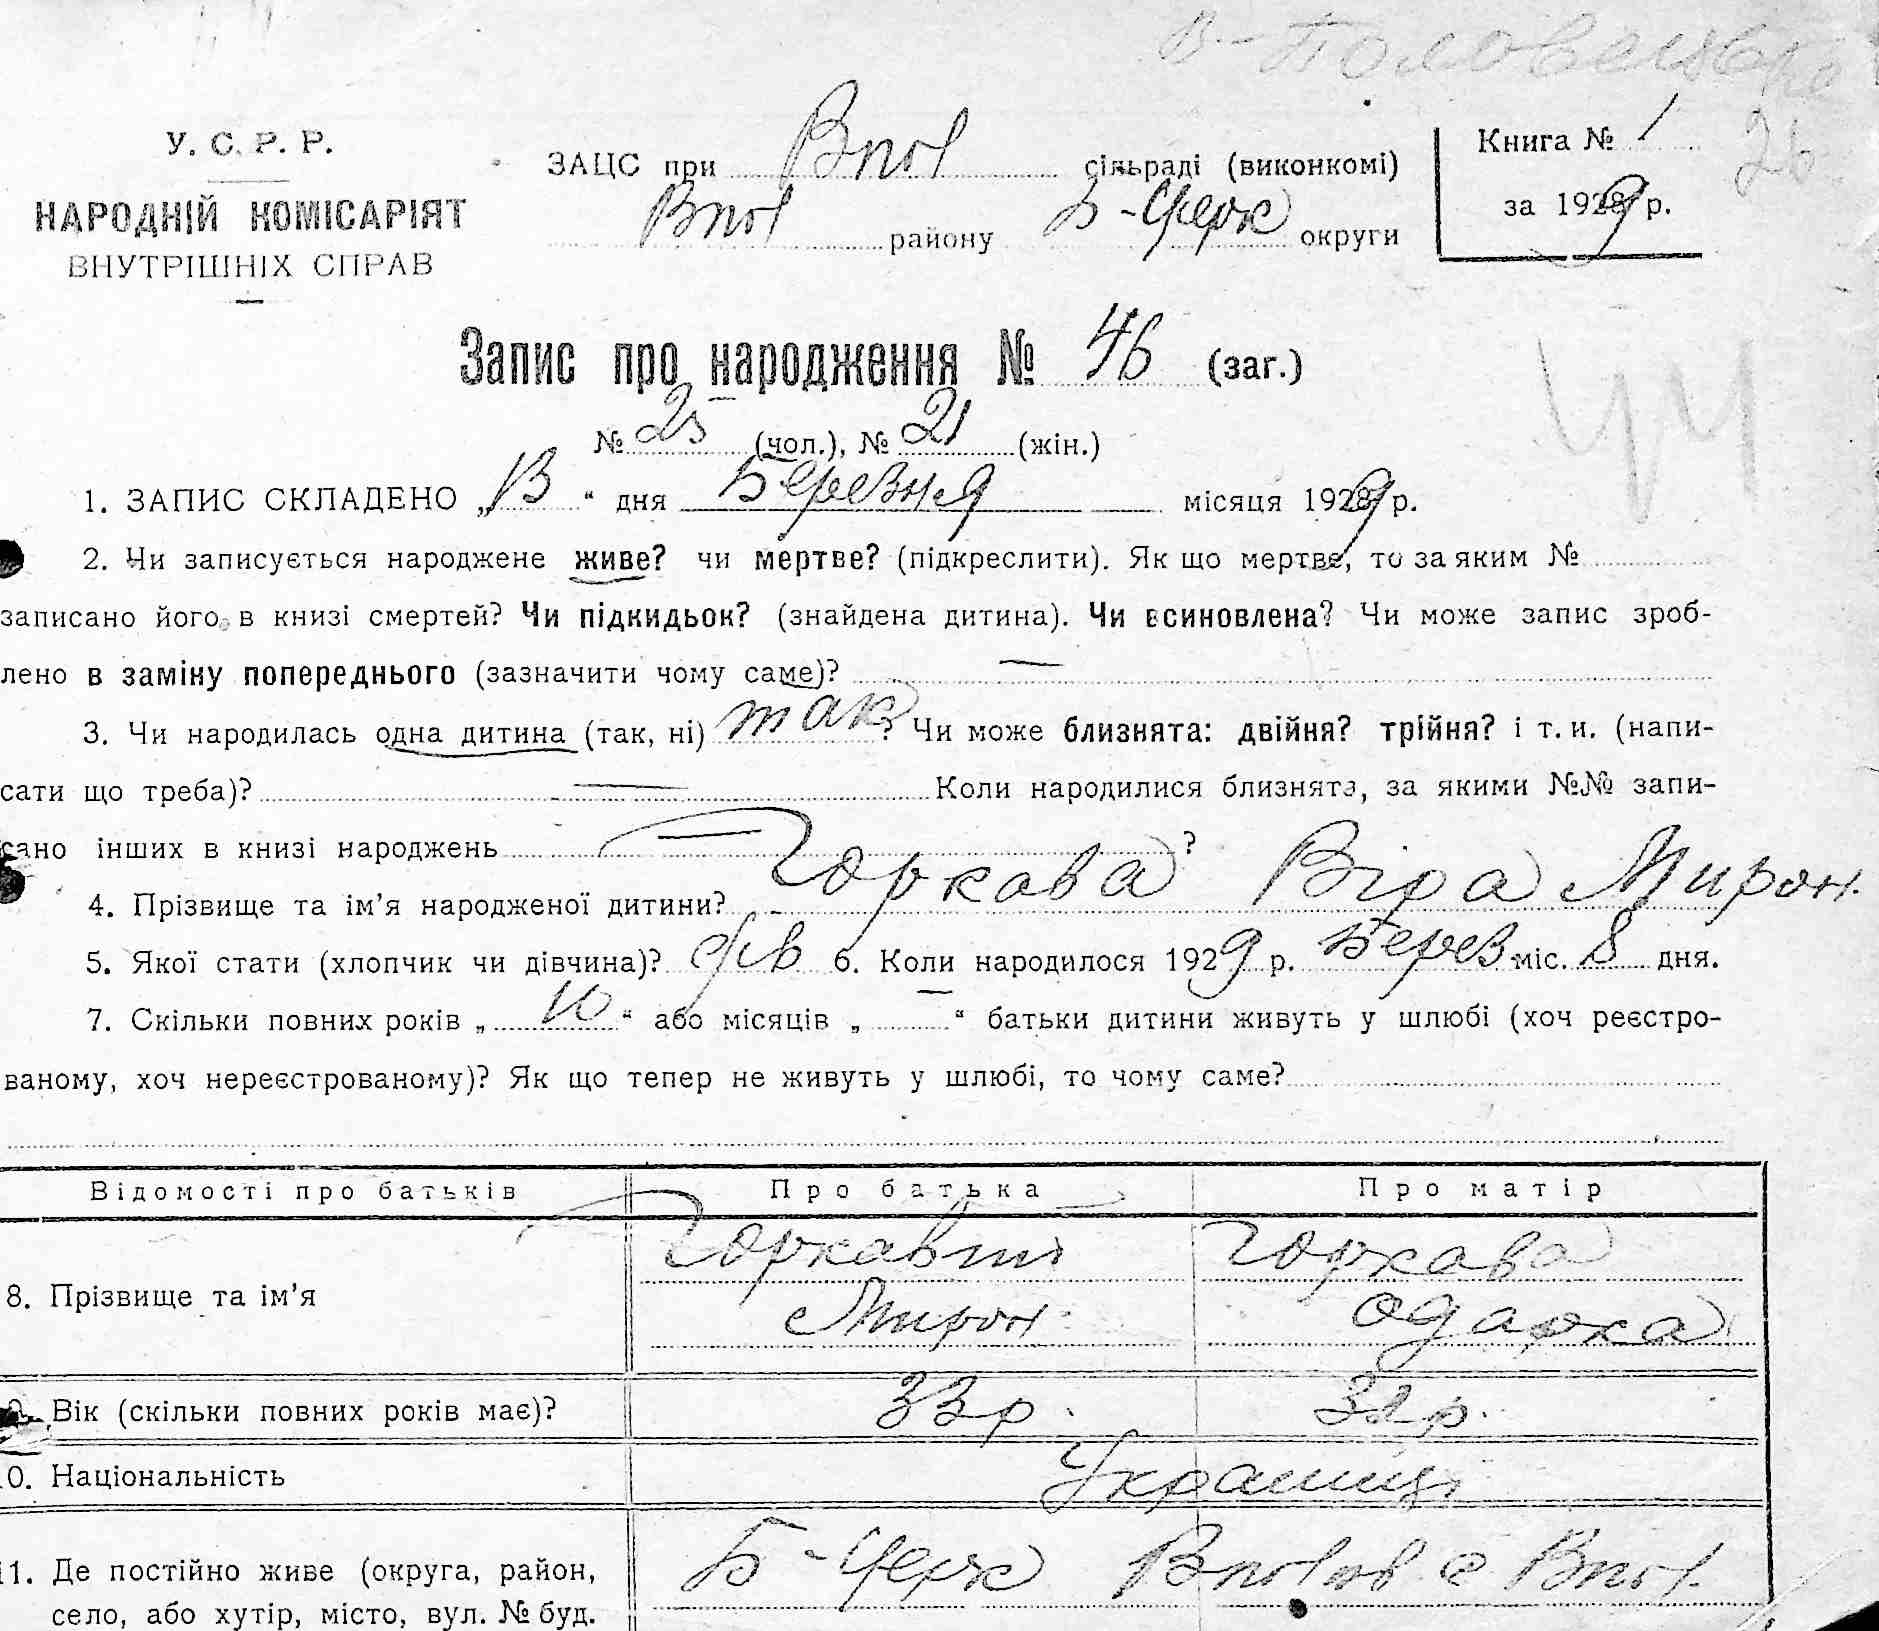 В-Половецьке
У. С. Р. Р.
НАРОДНІЙ КОМІСАРІЯТ
ВНУТРІШНІХ СПРАВ
ЗАЦС при Впол сільраді (виконкомі)
Впол району Б-Церк округи
Книга № 1
за 1929 р.
26
Запис про народження № 46 (заг.)
№ 25 (чол.), № 21 (жін.)
1. ЗАПИС СКЛАДЕНО „13“ дня Березня місяця 1929 р.
2. Чи записується народжене живе? чи мертве? (підкреслити). Як що мертве, то за яким №
записано його в книзі смертей? Чи підкидьок? (знайдена дитина). Чи всиновлена? Чи може запис зроб-
лено в заміну попереднього (зазначити чому саме)? —
3. Чи народилась одна дитина (так, ні) так? Чи може близнята: двійня? трійня? і т. и. (напи-
сати що треба)? — Коли народилися близнята, за якими №№ запи-
сано інших в книзі народжень — ?
4. Прізвище та ім’я народженої дитини? Горкава Віра Мирон.
5. Якої стати (хлопчик чи дівчина)? дів 6. Коли народилося 1929 р. Берез міс. 8 дня.
7. Скільки повних років „10“ або місяців „—“ батьки дитини живуть у шлюбі (хоч реєстро-
ваному, хоч нереєстрованому)? Як що тепер не живуть у шлюбі, то чому саме?
Відомості про батьків Про батька Про матір
8. Прізвище та ім’я Горкавий Горкава
Мирон Одарка
9. Вік (скільки повних років має)? 33 р. р.
10. Національність Українці
11. Де постійно живе (округа, район, Б-Церк Впол с Впол.
село, або хутір, місто, вул. № буд.